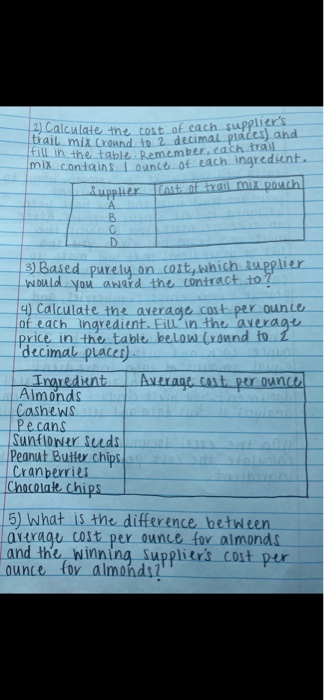 2) Calculate the cost of each supplier's
trail mix (round to 2 decimal places) and
fill in the table. Remember, each trail
mix contains 1 ounce of each ingredient.
Supplier Cost of trail mix pouch
A
B
C
D
3) Based purely on cost, which supplier
would you award the contract to?
4) Calculate the average cost per ounce
of each ingredient. Fill in the average
price in the table below (round to 2
decimal places).
Ingredient Average cost per ounce
Almonds
Cashews
Pecans
Sunflower Seeds
Peanut Butter chips
Cranberries
Chocolate chips
5) What is the difference between
average cost per ounce for almonds
and the winning supplier's cost per
ounce for almonds?